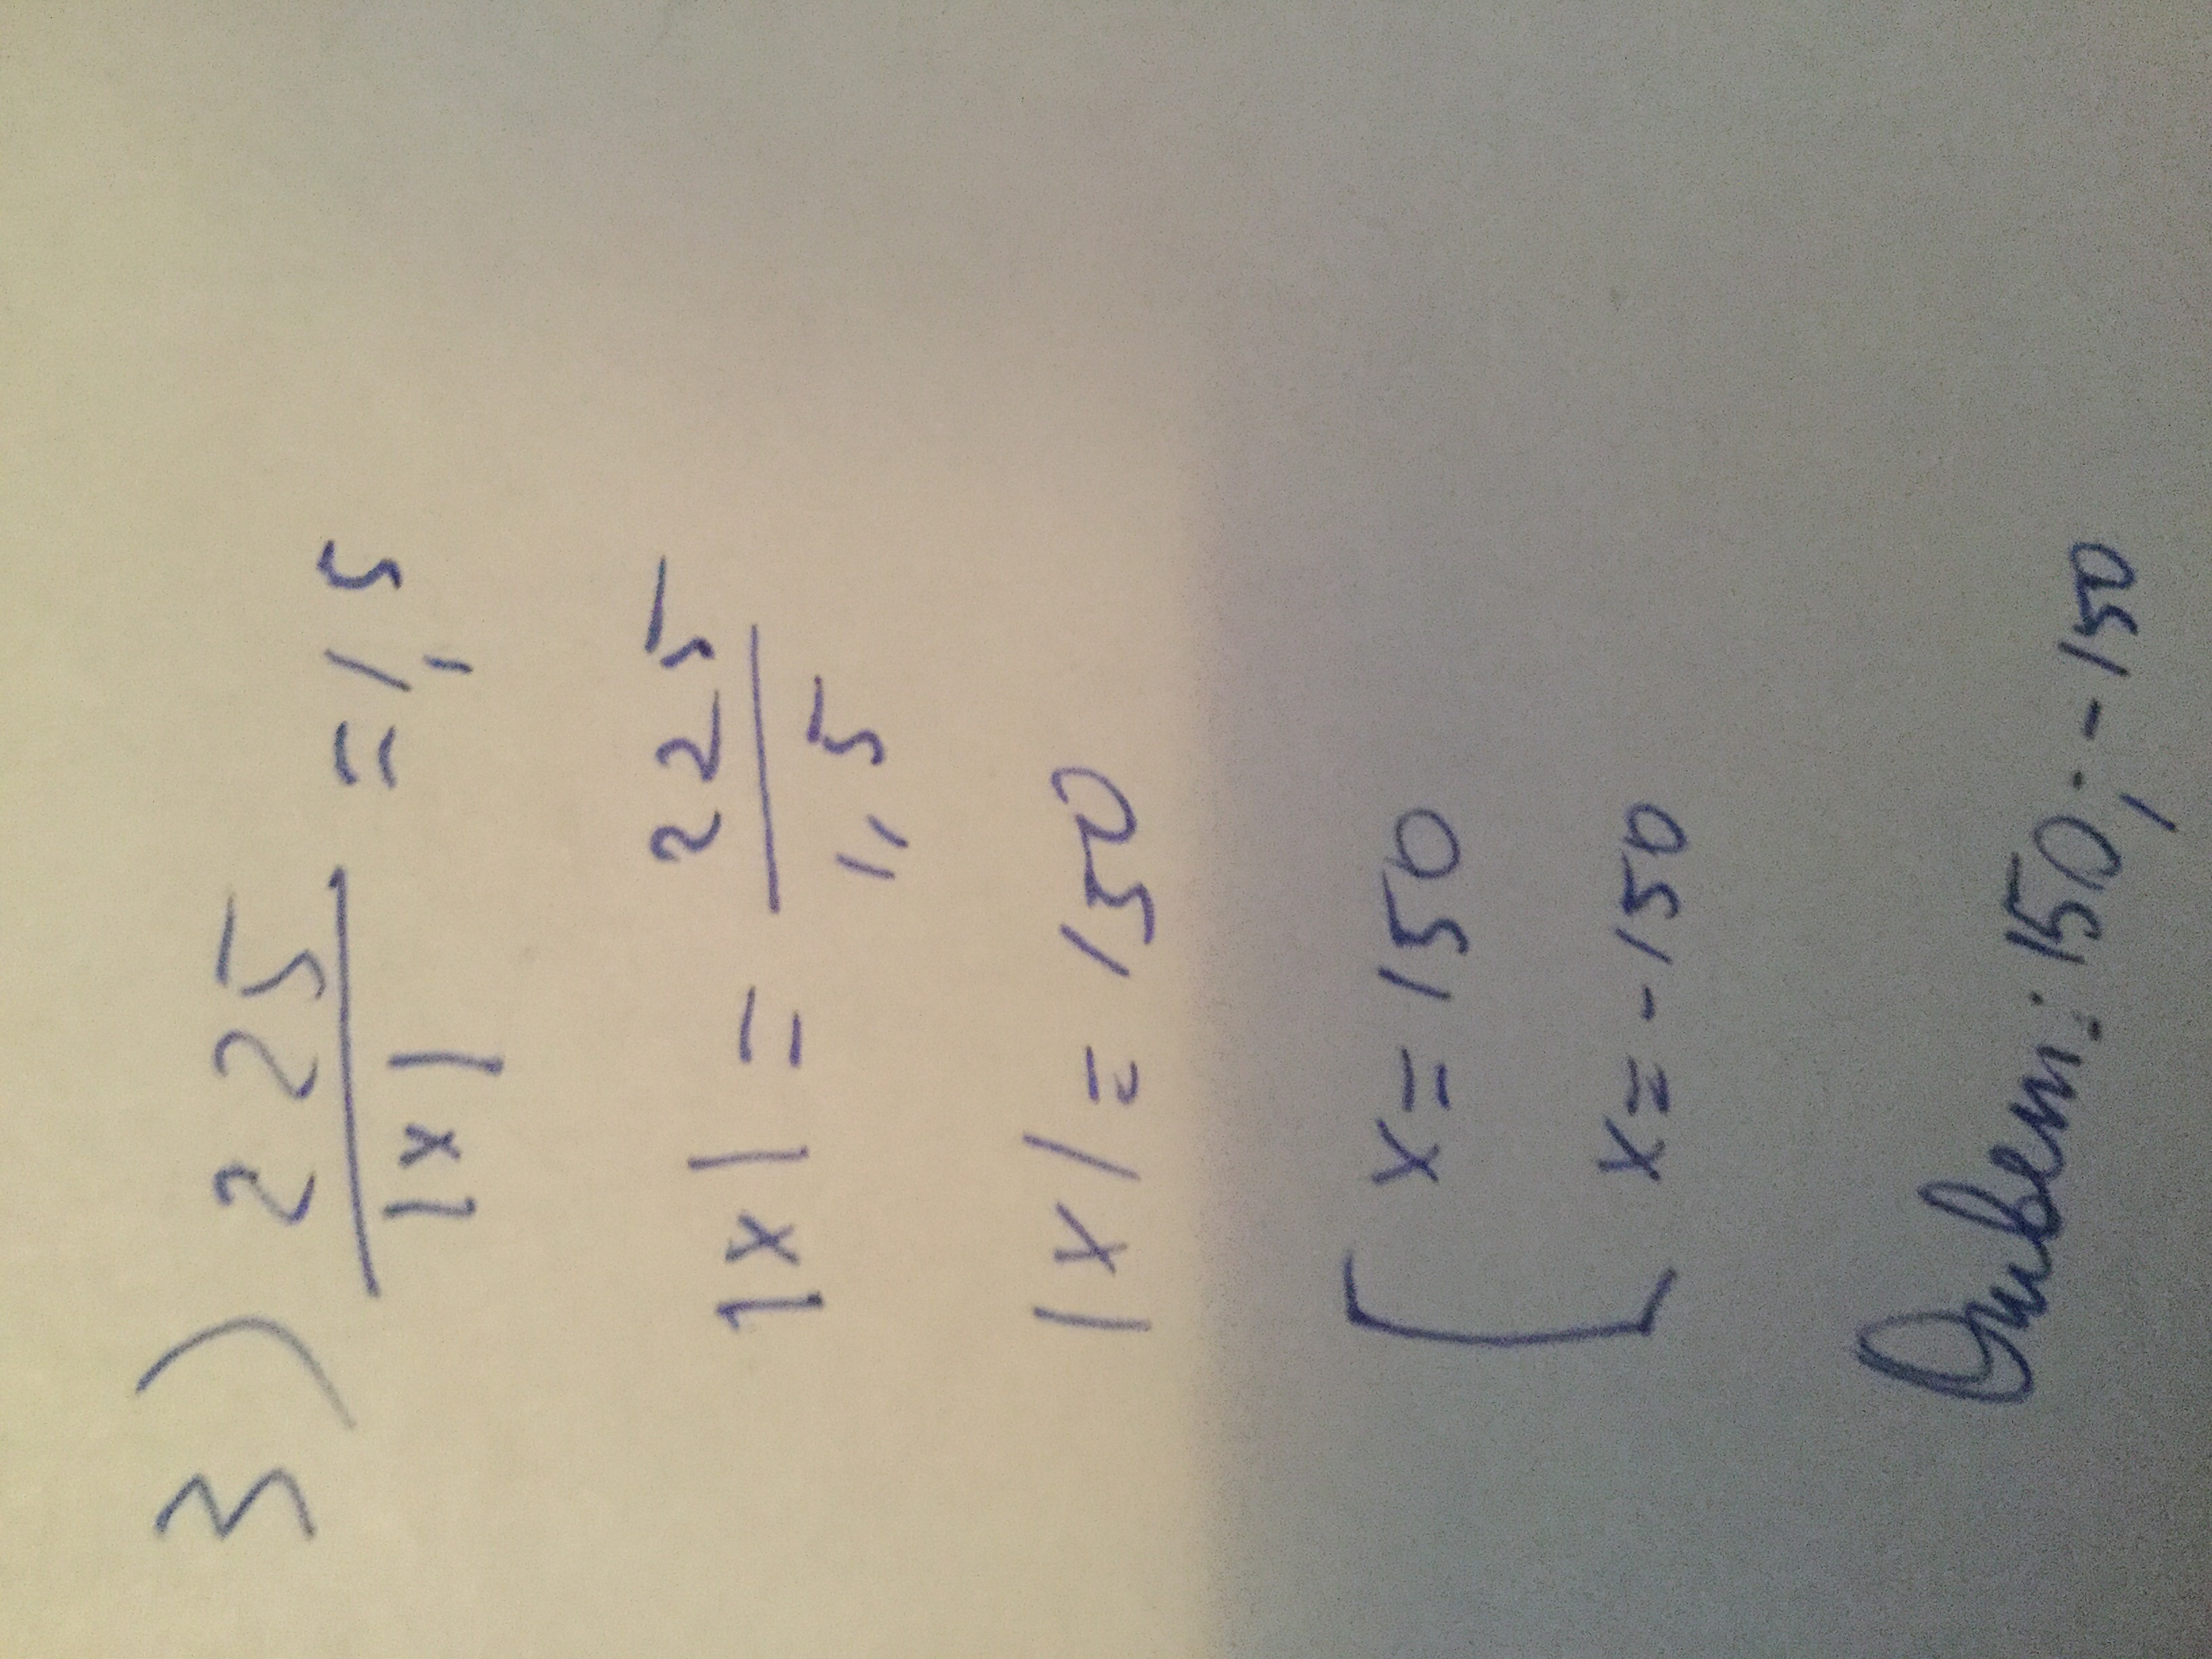 3) 225/|x| = 1,5
|x| = 225/1,5
|x| = 150
[ x = 150
x = -150
Ответ: 150; -150